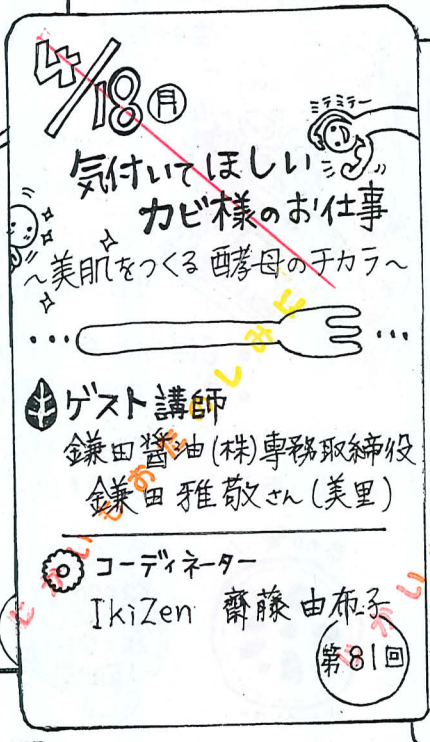 4/18 月
ミテミテー
気付いてほしい
カビ様のお仕事
~美肌をつくる 酵母のチカラ~
ゲスト講師
鎌田醤油(株)専務取締役
鎌田 雅敬さん(美里)
コーディネーター
IkiZen 齋藤 由布子
第81回
じかいもおたのしみに
じかい